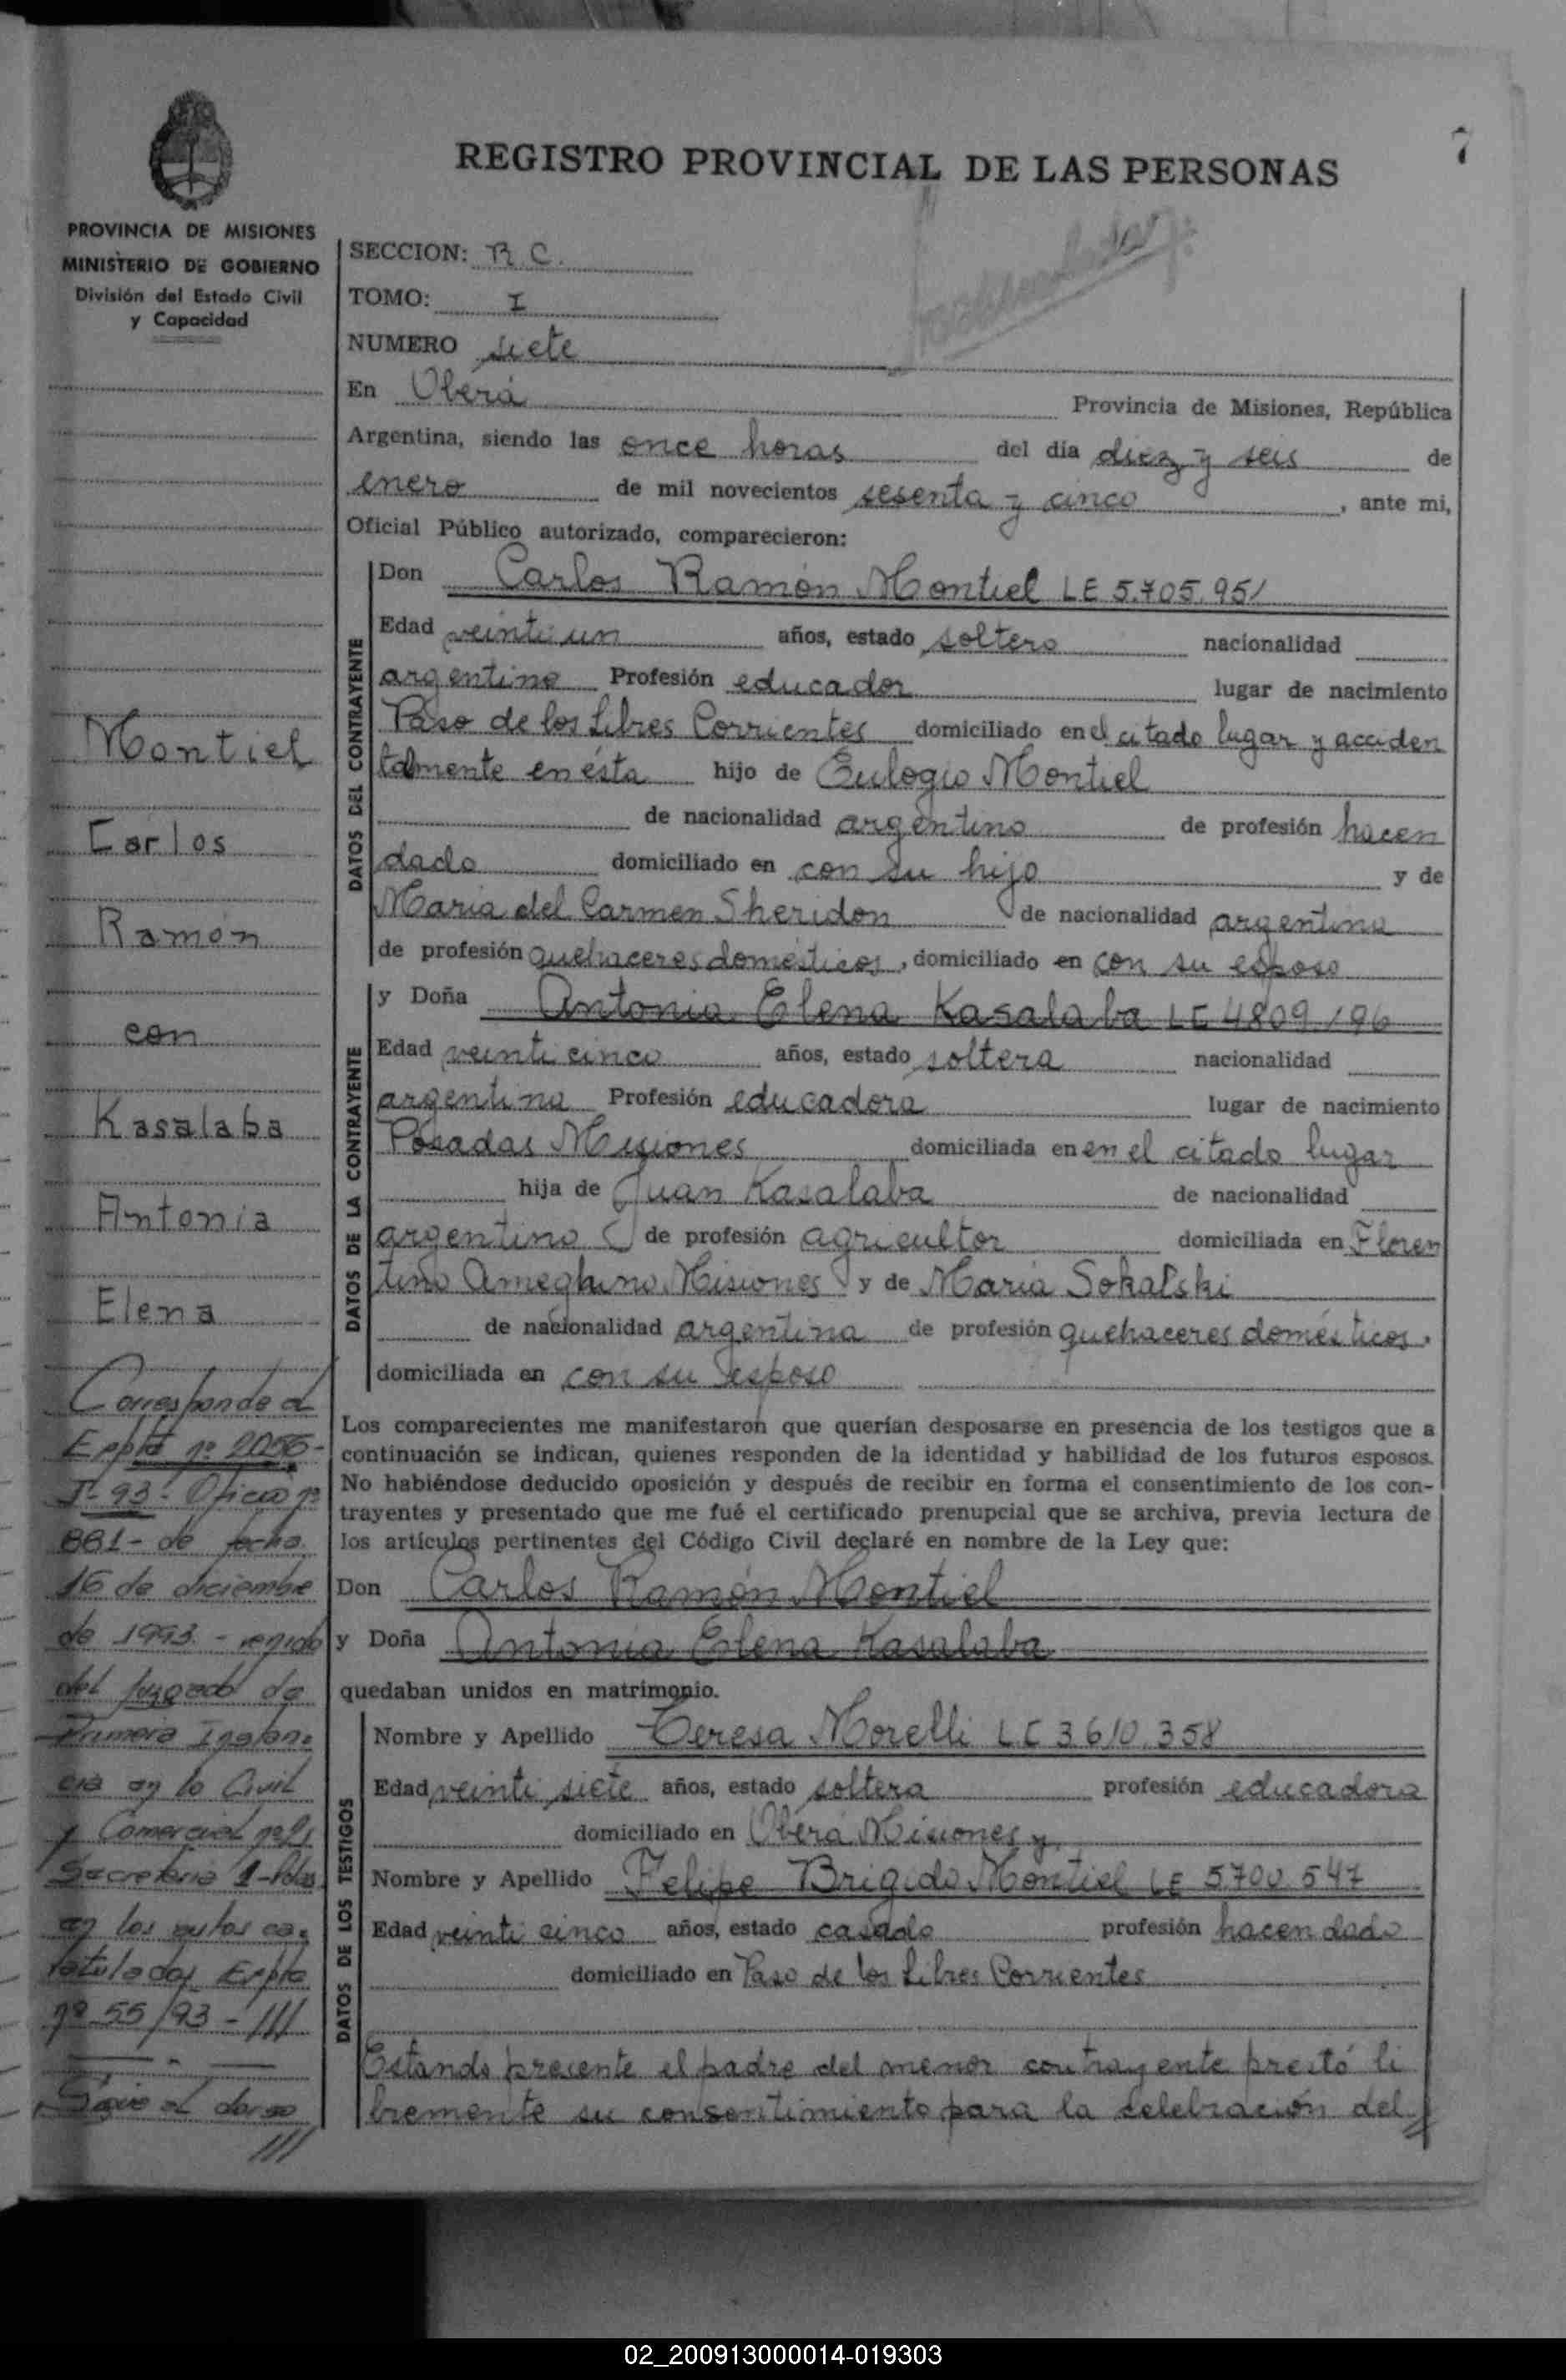 7
REGISTRO PROVINCIAL DE LAS PERSONAS
PROVINCIA DE MISIONES
MINISTERIO DE GOBIERNO
División del Estado Civil
y Capacidad
Montiel
Carlos
Ramón
con
Kasalaba
Antonia
Elena
Corresponde al
Expte nº 2056-
I-93- Oficio nº
881- de fecha
16 de diciembre
de 1993.- venido
del Juzgado de
Primera Instan-
cia en lo Civil
y Comercial nº 2
Secretaria 1-Pdas
en los autos ca-
ratulados Expte
nº 55/93-///
Sigue al dorso
///
SECCION: R C.
TOMO: I
NUMERO siete
En Oberá Provincia de Misiones, República
Argentina, siendo las once horas del día diez y seis de
enero de mil novecientos sesenta y cinco, ante mi,
Oficial Público autorizado, comparecieron:
DATOS DEL CONTRAYENTE
Don Carlos Ramón Montiel LE 5.705.951
Edad veinti un años, estado soltero nacionalidad
argentino Profesión educador lugar de nacimiento
Paso de los Libres Corrientes domiciliado en el citado lugar y acciden
talmente en ésta hijo de Eulogio Montiel
de nacionalidad argentino de profesión hacen
dado domiciliado en con su hijo y de
Maria del Carmen Sheridon de nacionalidad argentina
de profesión quehaceres domésticos, domiciliado en con su esposo
DATOS DE LA CONTRAYENTE
y Doña Antonia Elena Kasalaba LC 4809196
Edad veinti cinco años, estado soltera nacionalidad
argentina Profesión educadora lugar de nacimiento
Posadas Misiones domiciliada en en el citado lugar
hija de Juan Kasalaba de nacionalidad
argentino de profesión agricultor domiciliada en Floren
tino Ameghino Misiones y de Maria Sokalski
de nacionalidad argentina de profesión quehaceres domésticos.
domiciliada en con su esposo
Los comparecientes me manifestaron que querían desposarse en presencia de los testigos que a
continuación se indican, quienes responden de la identidad y habilidad de los futuros esposos.
No habiéndose deducido oposición y después de recibir en forma el consentimiento de los con-
trayentes y presentado que me fué el certificado prenupcial que se archiva, previa lectura de
los artículos pertinentes del Código Civil declaré en nombre de la Ley que:
Don Carlos Ramón Montiel
y Doña Antonia Elena Kasalaba
quedaban unidos en matrimonio.
DATOS DE LOS TESTIGOS
Nombre y Apellido Teresa Morelli LC 3610.358
Edad veinti siete años, estado soltera profesión educadora
domiciliado en Oberá Misiones y
Nombre y Apellido Felipe Brigido Montiel LE 5700 547
Edad veinti cinco años, estado casado profesión hacendado
domiciliado en Paso de los Libres Corrientes
Estando presente el padre del menor contrayente prestó li
bremente su consentimiento para la celebración del
02_200913000014-019303